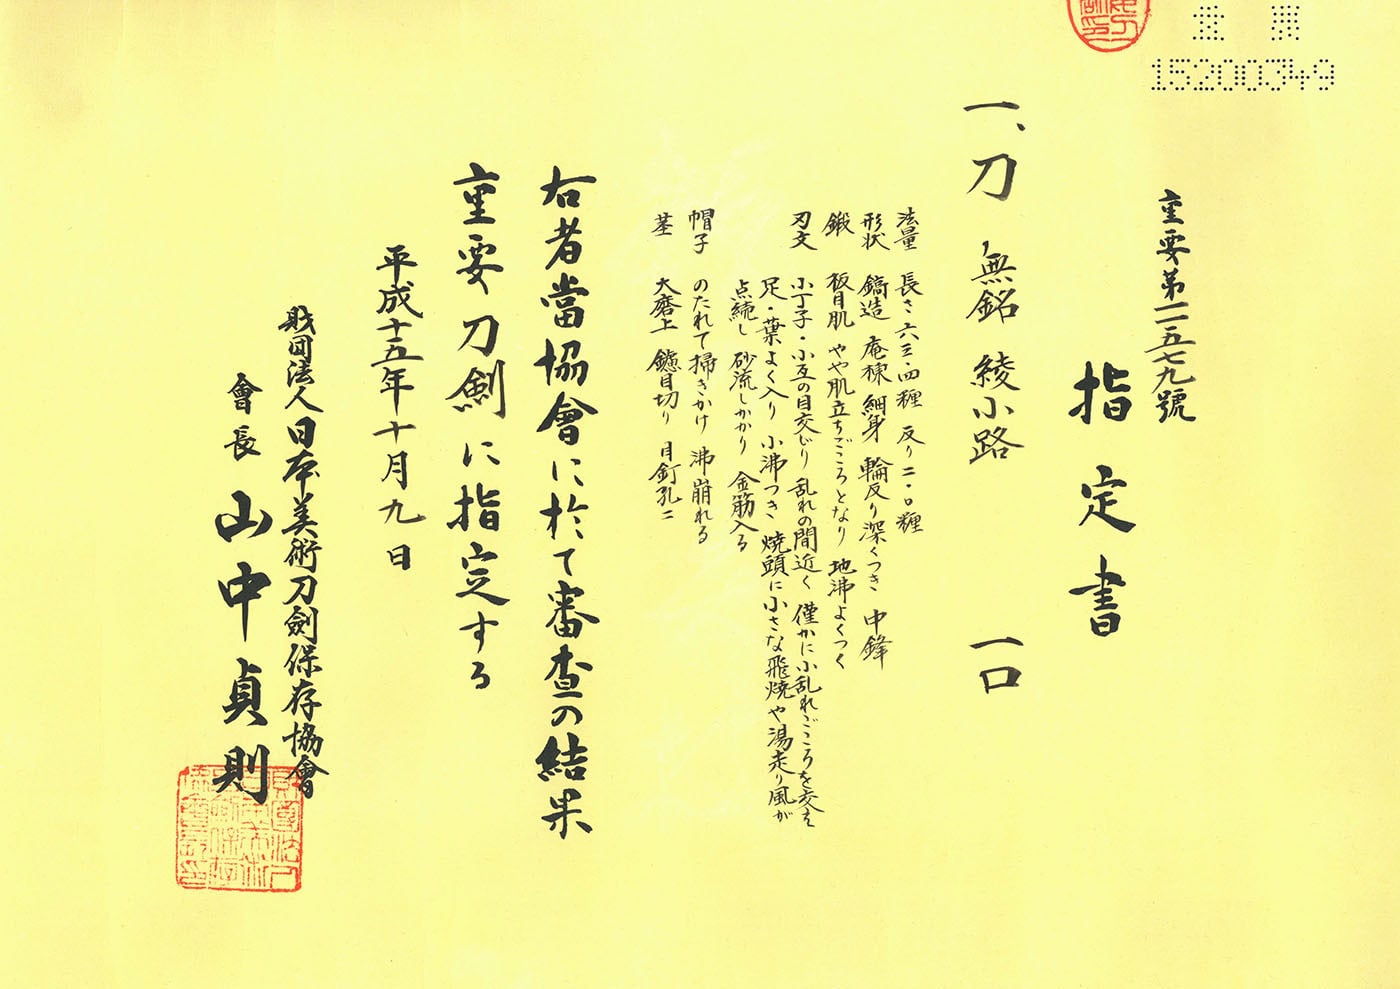 15200349
重要第一一五七九號
指定書
一、刀 無銘 綾小路 一口
法量 長さ六三・四糎 反り二・〇糎
形状 鎬造 庵棟 細身 輪反り深くつき 中鋒
鍛 板目肌 やや肌立ちごころとなり 地沸よくつく
刃文 小丁子・小互の目交じり 乱れの間近く 僅かに小乱れごころを交え
足・葉よく入り 小沸つき 焼頭に小さな飛焼や湯走り風が
点続し 砂流しかかり 金筋入る
帽子 のたれて掃きかけ 沸崩れる
茎 大磨上 鑢目切り 目釘孔二
右者當協會に於て審査の結果
重要刀剣に指定する
平成十五年十月九日
財団法人日本美術刀劍保存協會
會長 山中貞則